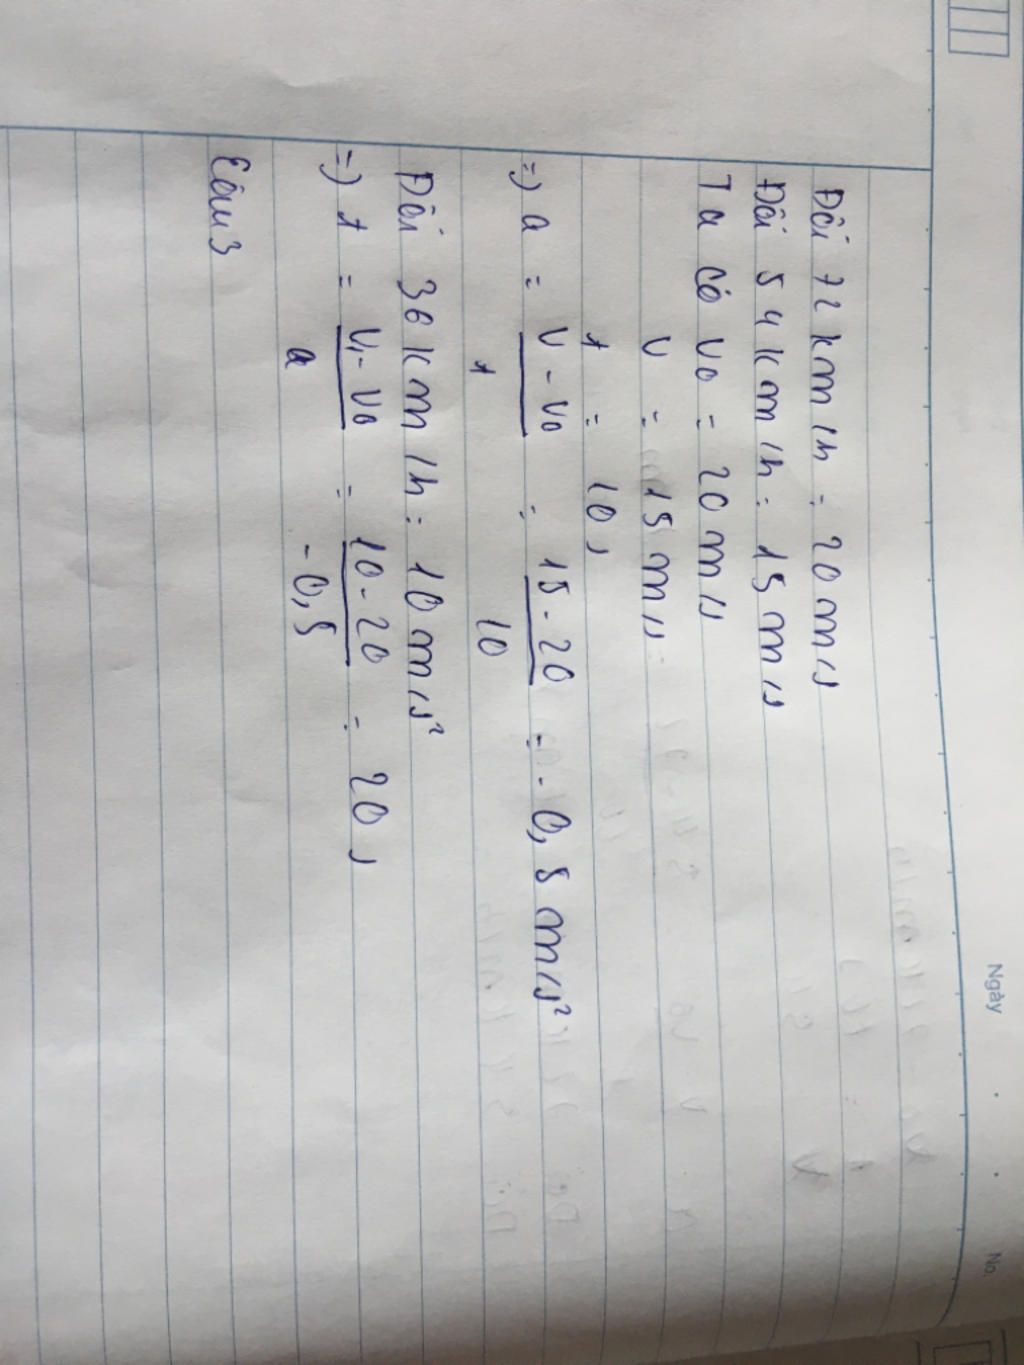 Ngày
No.
Đổi 72 km/h = 20 m/s
Đổi 54 km/h = 15 m/s
Ta có v0 = 20 m/s
v = 15 m/s
t = 10s
=> a = (v - v0)/t = (15 - 20)/10 = -0,5 m/s²
Đổi 36 km/h = 10 m/s²
=> t = (v1 - v0)/a = (10 - 20)/-0,5 = 20s
Câu 3